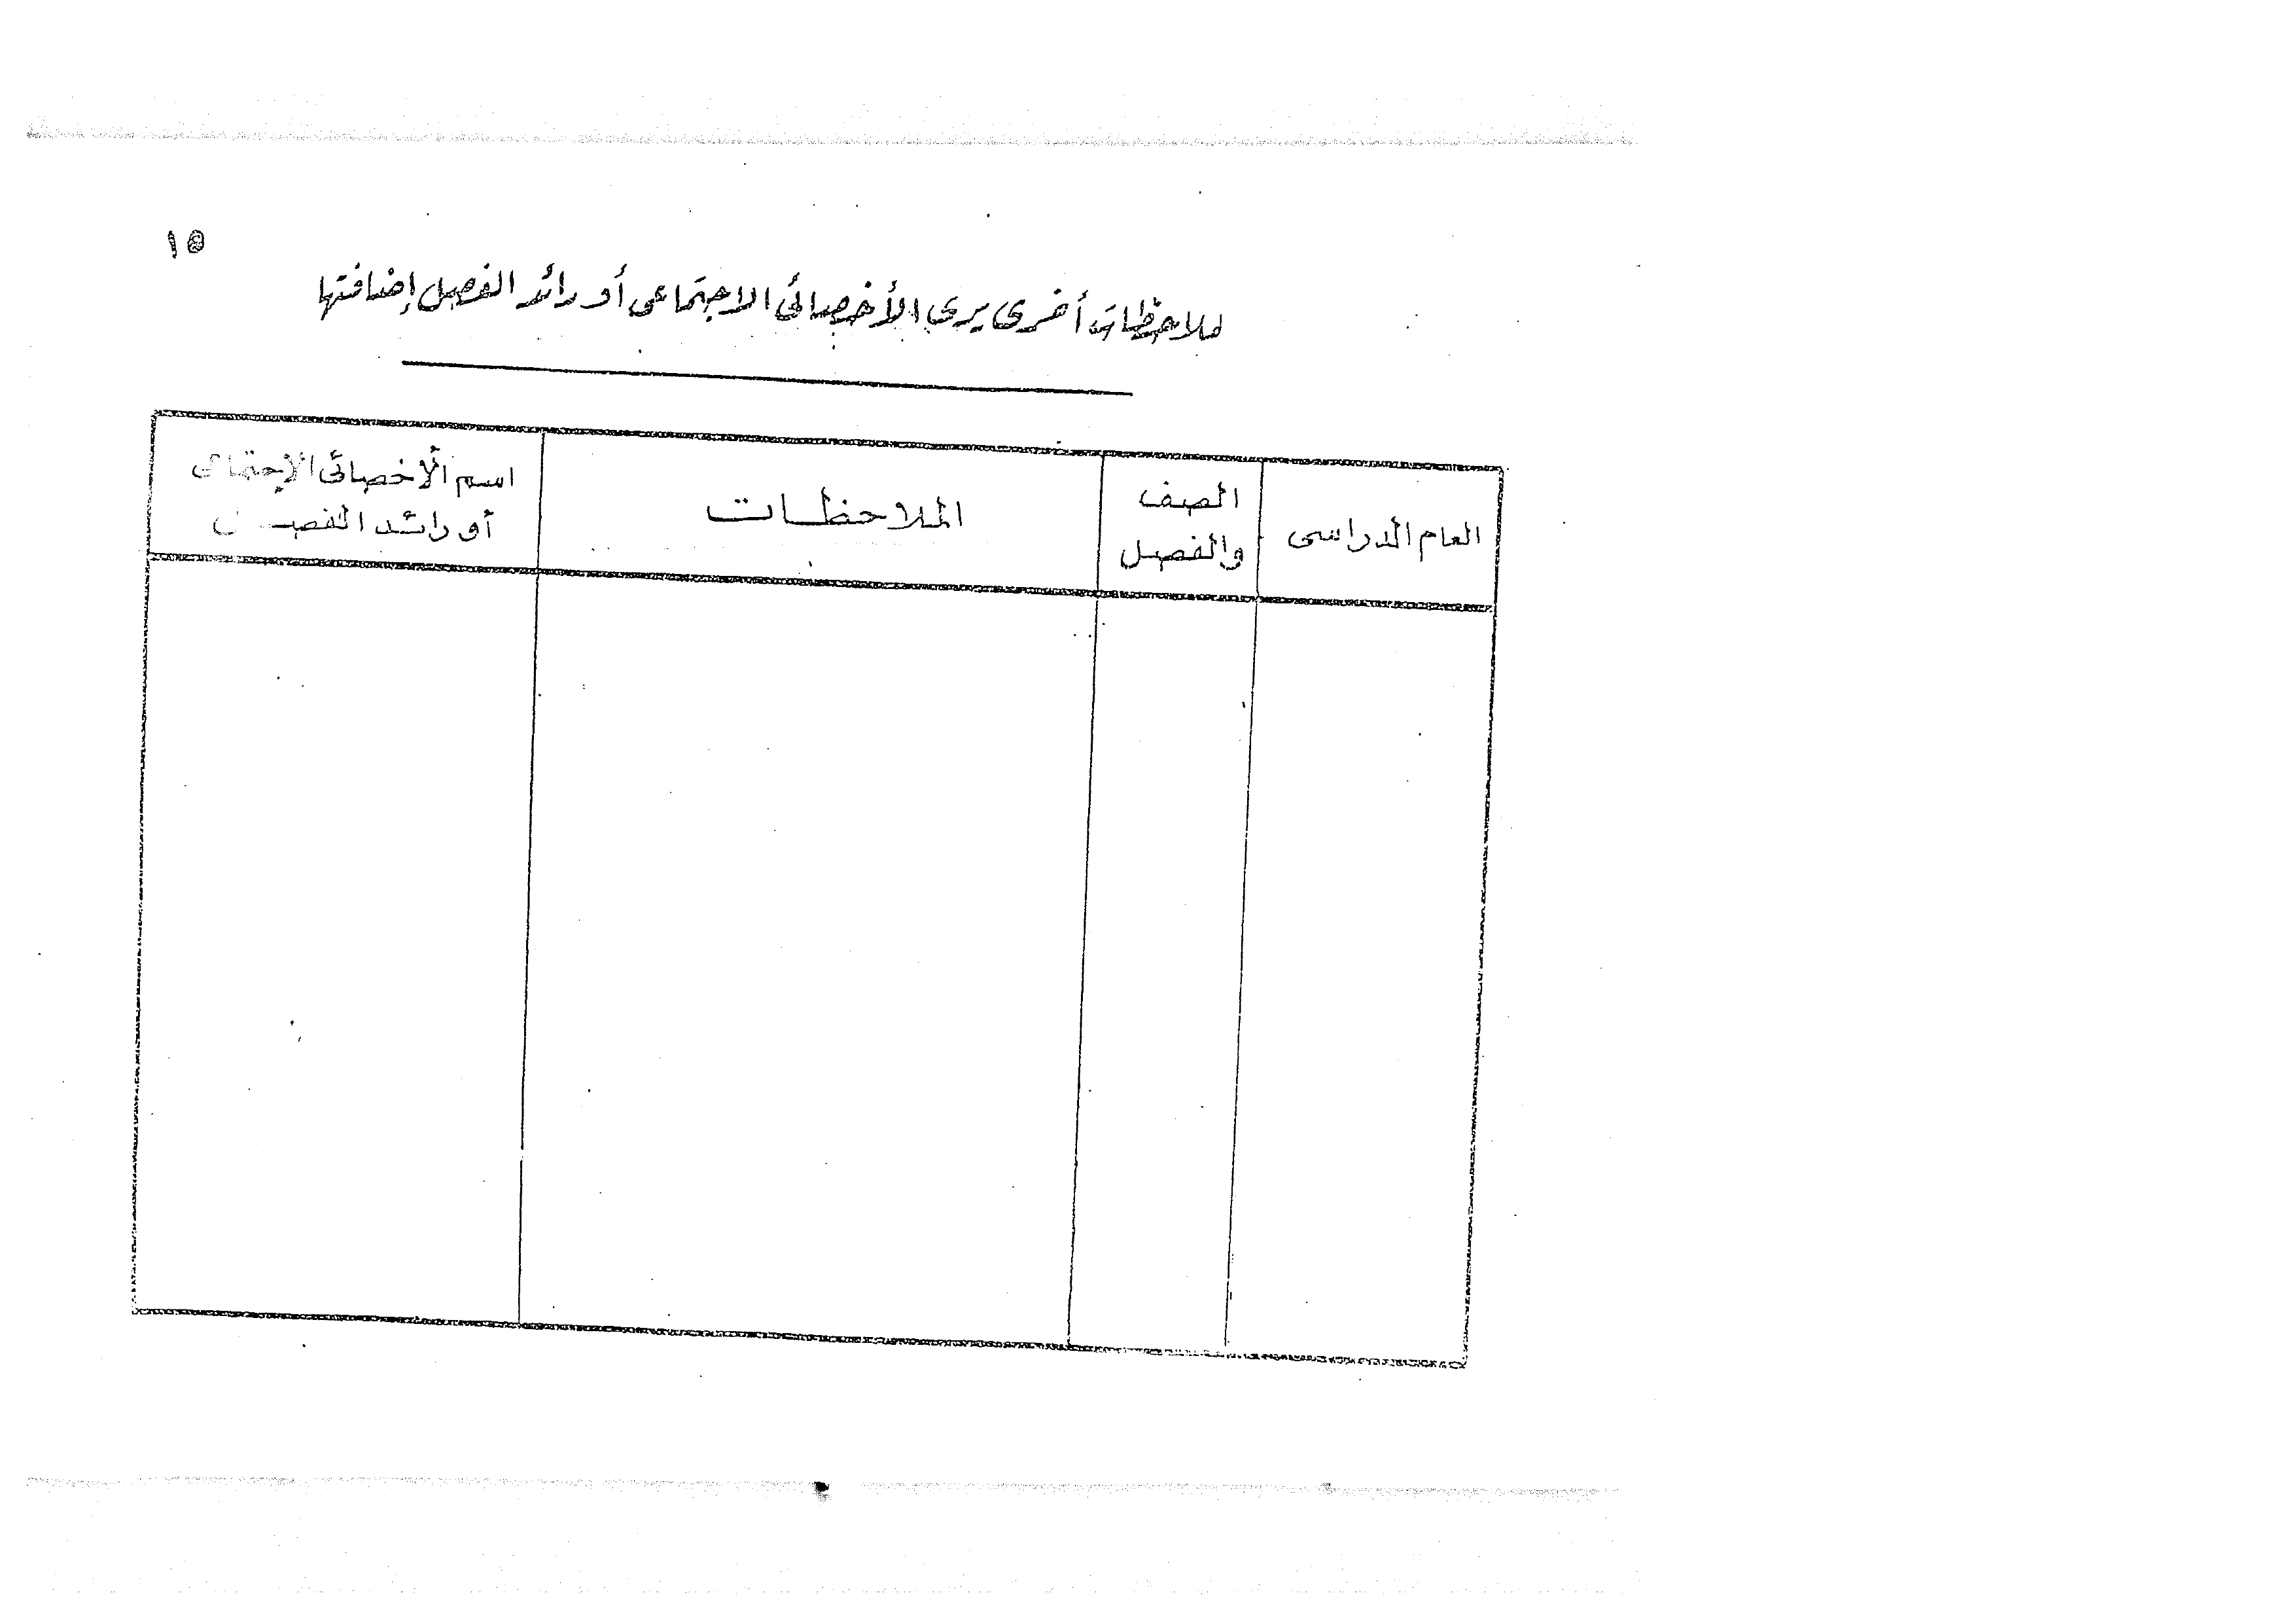 ١٥
ملاحظات أخرى يرى الأخصائى الاجتماعى أو رائد الفصل إضافتها
العام الدراسى
الصف
والفصل
الملاحظات
اسم الأخصائى الإجتماعى
أو رائد الفصل